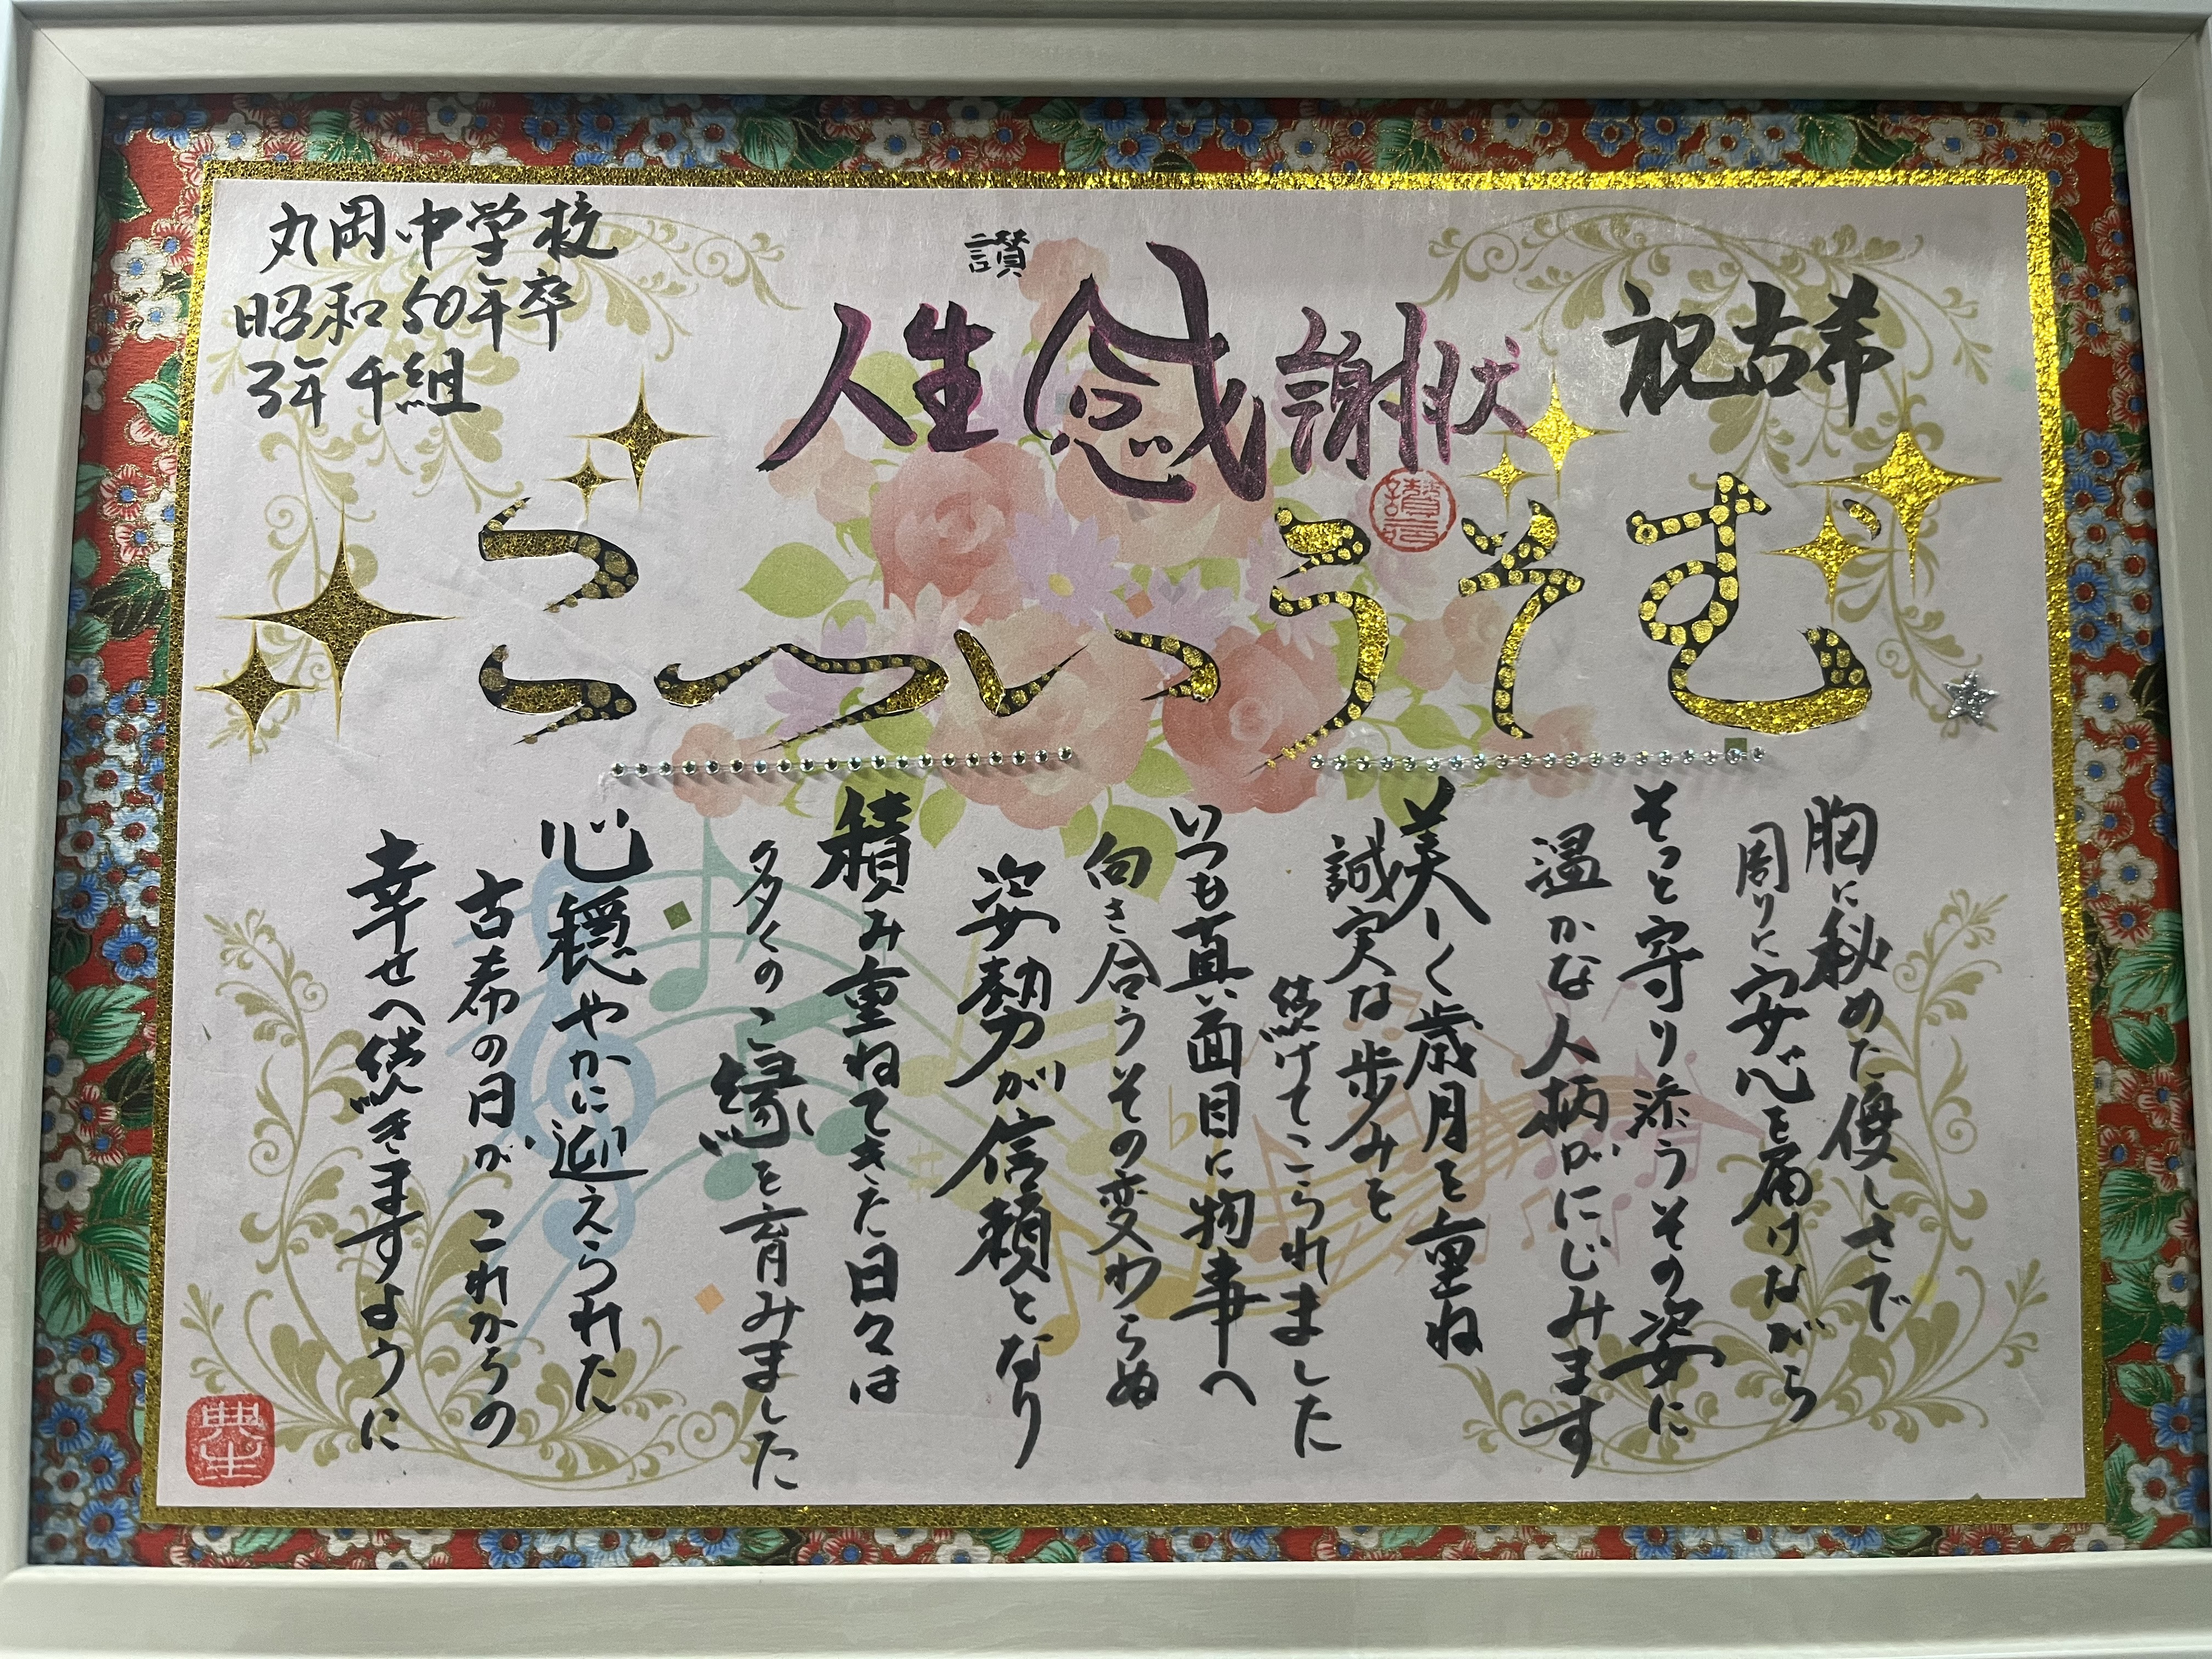 祝古希
讃
人生感謝状
丸岡中学校
昭和50年卒
3年千組
むそういつこ
胸に秘めた優しさで
周りに安心を届けながら
そっと守り添うその姿に
温かな人柄がにじみます
美しく歳月を重ね
誠実な歩みを
続けてこられました
いつも真面目に物事へ
向き合うその変わらぬ
姿勢が信頼となり
積み重ねてきた日々は
多くのご縁を育みました
心穏やかに迎えられた
古希の日が これからの
幸せへ続きますように
典生